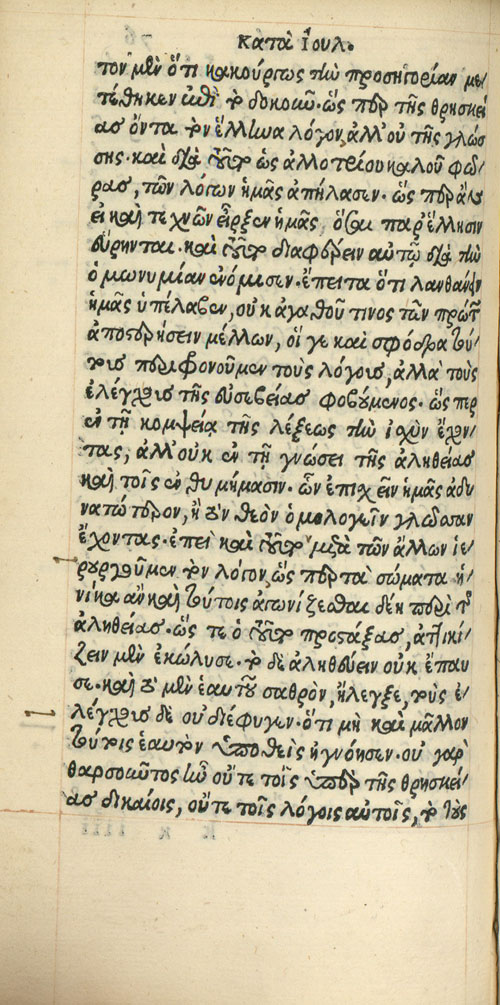 Κατὰ Ἰουλ.
τον μὲν ὅτι κακούργως τὴν προσηγορίαν με-
τέθηκεν ἐπὶ τὸ δοκοῦν. ὥσπερ τῆς θρησκεί-
ας ὄντα τὸν ἕλληνα λόγον, ἀλλ' οὐ τῆς γλώσ-
σης. καὶ διὰ τοῦτο ὡς ἀλλοτρίου καλοῦ φώ-
ρας, τῶν λόγων ἡμᾶς ἀπήλασεν. ὥσπερ ἂν
εἰ καὶ τεχνῶν εἶρξεν ἡμᾶς, ὅσαι παρ' ἕλλησιν
εὕρηνται. καὶ τοῦτο διαφέρειν αὐτῷ διὰ τὴν
ὁμωνυμίαν ἐνόμισεν. ἔπειτα ὅτι λανθάνειν
ἡμᾶς ὑπέλαβεν, οὐκ ἀγαθοῦ τινος τῶν πρώτων
ἀποστερήσειν μέλλων, οἵ γε καὶ σφόδρα τού-
τοις περιφρονοῦμεν τοὺς λόγους, ἀλλὰ τοὺς
ἐλέγχους τῆς δυσσεβείας φοβούμενος. ὥσπερ
ἐν τῇ κομψείᾳ τῆς λέξεως τὴν ἰσχὺν ἔχον-
τας, ἀλλ' οὐκ ἐν τῇ γνώσει τῆς ἀληθείας
καὶ τοῖς ἐνθυμήμασιν. ὧν ἐπισχεῖν ἡμᾶς ἀδυ-
νατώτερον, ἢ τὸν θεὸν ὁμολογεῖν γλῶσσαν
ἔχοντας. ἐπεὶ καὶ τοῦτο μετὰ τῶν ἄλλων ἱε-
ρουργοῦμεν τὸν λόγον, ὥσπερ τὰ σώματα ἡ-
νίκα ἂν καὶ τούτοις ἀγωνίζεσθαι δέῃ περὶ τῆς
ἀληθείας. ὥστε ὁ τοῦτο προστάξας, ἀττικί-
ζειν μὲν ἐκώλυσε. τὸ δὲ ἀληθεύειν οὐκ ἔπαυ-
σε. καὶ τὸ μὲν ἑαυτοῦ σαθρὸν, ἤλεγξε, τοὺς ἐ-
λέγχους δὲ οὐ διέφυγεν. ὅτι μὴ καὶ μᾶλλον
τούτοις ἑαυτὸν ὑποθεὶς ἠγνόησεν. οὐ γὰρ
θαρσοῦντος ἦν οὔτε τοῖς ὑπὲρ τῆς θρησκεί-
ας δικαίοις, οὔτε τοῖς λόγοις αὐτοῖς, τὸ τοὺς
k k iiii